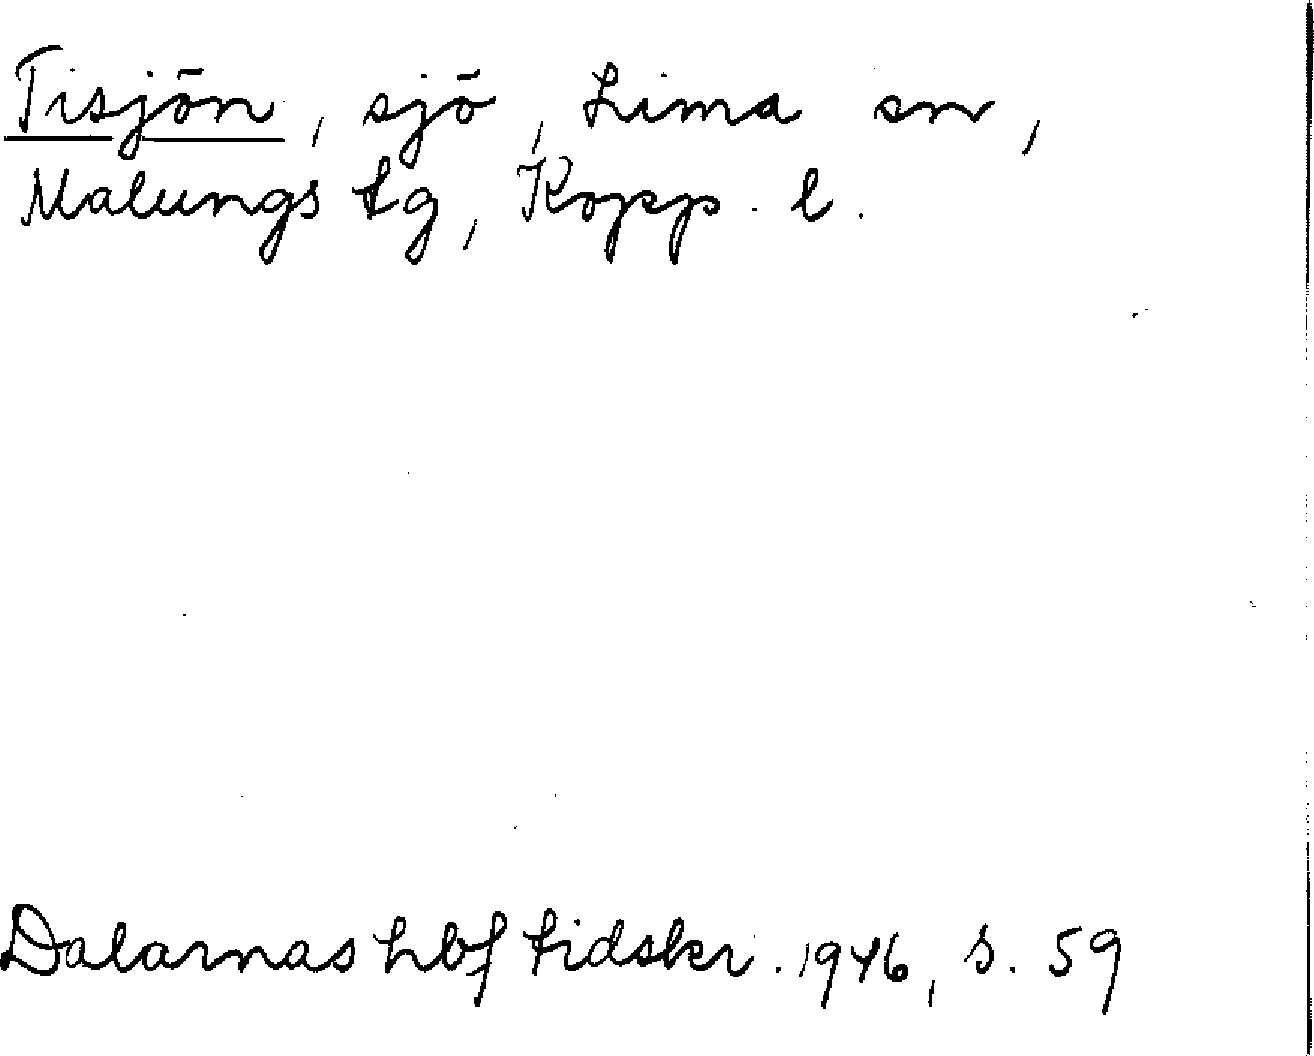 Tisjön, sjö, Lima sn,
Malungs tg, Kopp. l.
Dalarnas hbf tidskr. 1946, s. 59